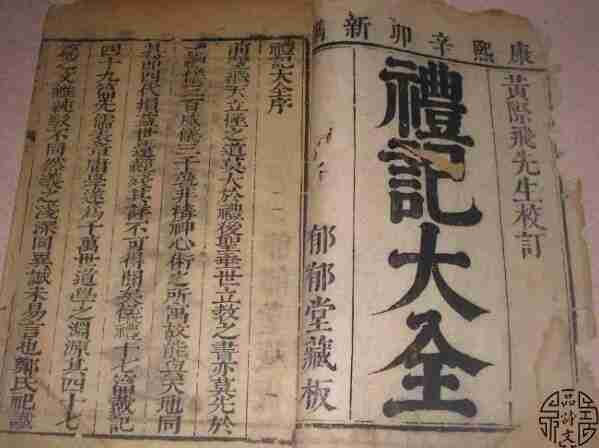 康熙辛卯新
黃際飛先生校訂
禮記大全
郁郁堂藏板
禮記大全序
前聖繼天立極之道莫大於禮後聖垂世立教之書亦莫先於
禮禮儀三百威儀三千莫非精神心術之所寓故能與天地同
其節四代損益世遠經殘其詳不可得聞矣儀禮十七篇戴記
四十九篇先儒表章庸學遂為千萬世道學之淵源其四十七
篇之文雖純駁不同然義之淺深同異誠未易言也鄭氏祀讖